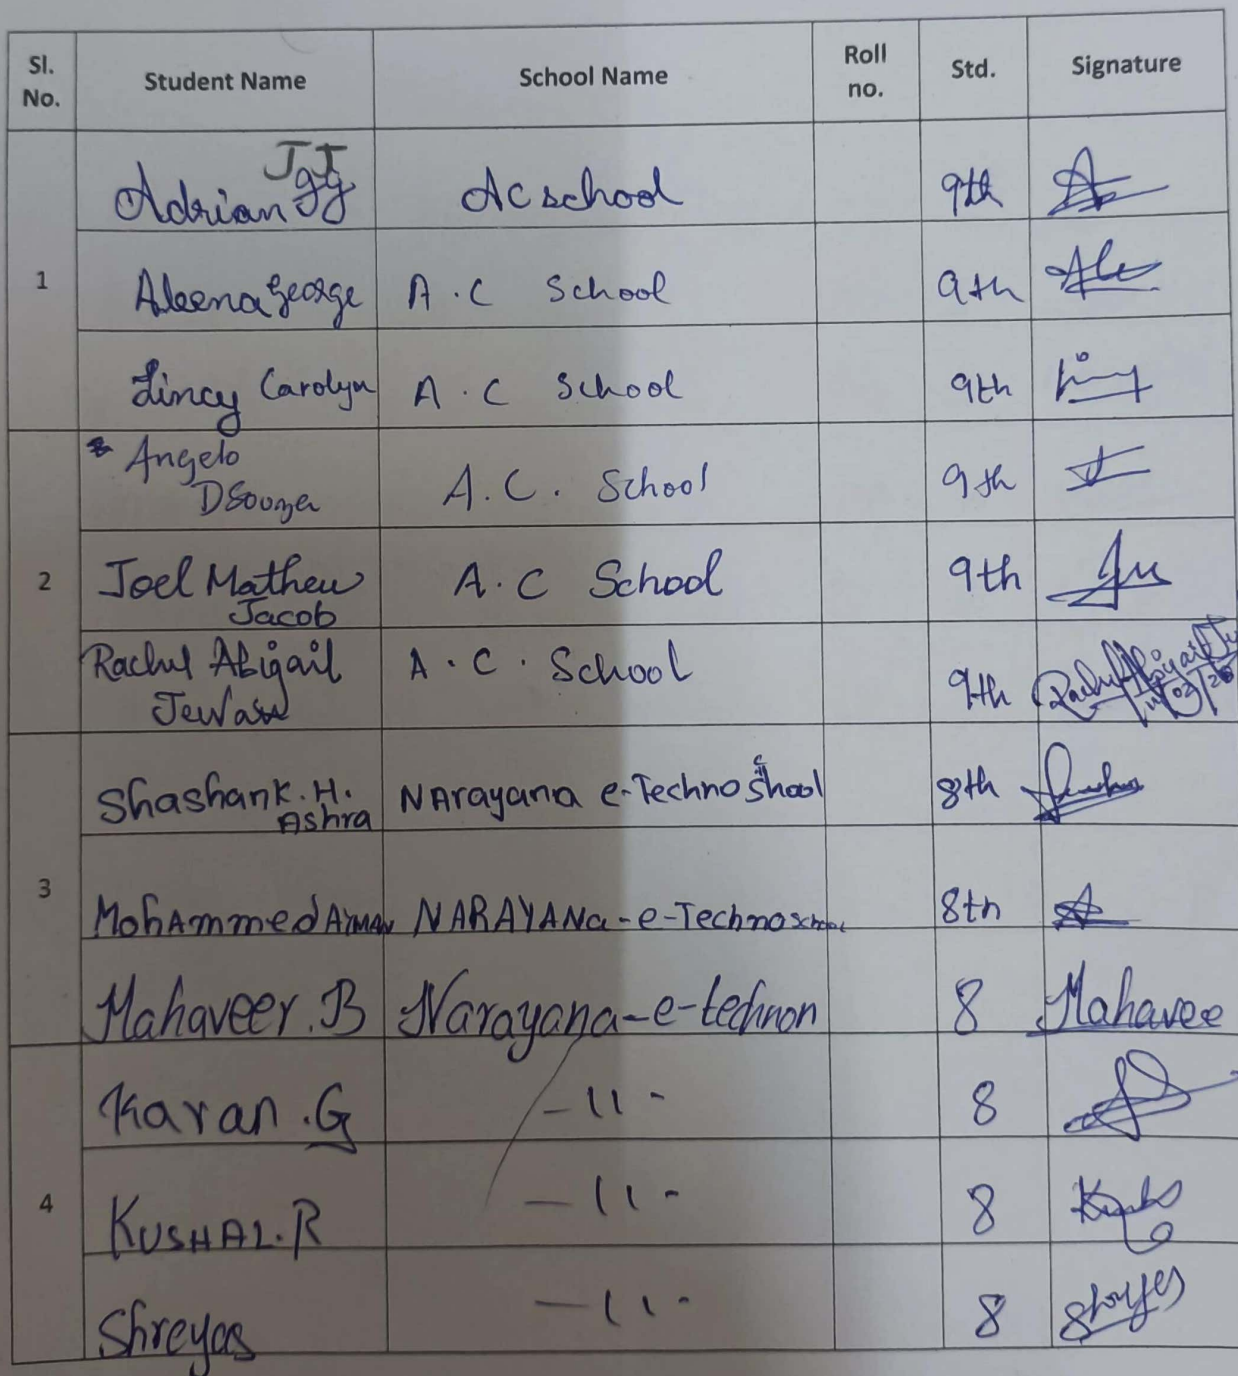 Sl. No. Student Name School Name Roll no. Std. Signature
Adrian JJ AC school 9th
1 Aleena George A.C School 9th
Lincy Carolyn A.C School 9th
Angelo
DSouza A.C. School 9th
2 Joel Mathew
Jacob A.C School 9th
Rachel Abigail A.C. School 9th
Shashank.H.
Ashra NArayana e-Techno School 8th
3 MohAmmed AYMAN NARAYANa-e-Techno School 8th
Mahaveer.B Narayana-e-technon 8 Mahavee
Karan.G -11- 8
4 KUSHAL.R -11- 8
Shreyas -11- 8 Shreyas